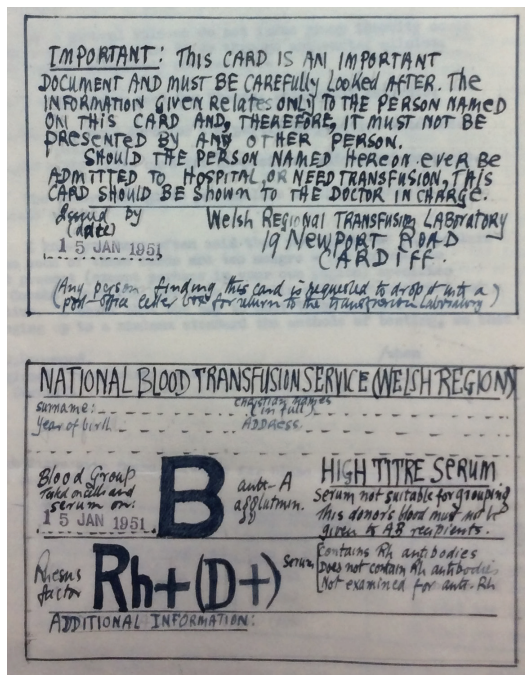 IMPORTANT: THIS CARD IS AN IMPORTANT
DOCUMENT AND MUST BE CAREFULLY LOOKED AFTER. The
INFORMATION GIVEN Relates ONLY TO THE PERSON NAMED
ON THIS CARD AND, THEREFORE, IT MUST NOT BE
PRESENTED BY ANY OTHER PERSON.
SHOULD THE PERSON NAMED HEREON EVER BE
ADMITTED TO HOSPITAL, OR NEED TRANSFUSION, THIS
CARD SHOULD BE SHOWN TO THE DOCTOR IN CHARGE.
Issued by Welsh REGIONAL TRANSFUSION LABORATORY
(date) 19 NEWPORT ROAD
15 JAN 1951 CARDIFF.
(Any person finding this card is requested to drop it into a
post-office letter box for return to the transfusion laboratory)
NATIONAL BLOOD TRANSFUSION SERVICE (WELSH REGION)
surname: christian names
(in full)
year of birth ADDRESS
Blood Group
Tested on cells and
serum on:
15 JAN 1951
B
anti-A
agglutinin.
HIGH TITRE SERUM
Serum not suitable for grouping
This donor's blood must not be
given to AB recipients.
Rhesus
factor
Rh+(D+)
Serum
Contains Rh antibodies
Does not contain Rh antibodies
Not examined for anti-Rh
ADDITIONAL INFORMATION: